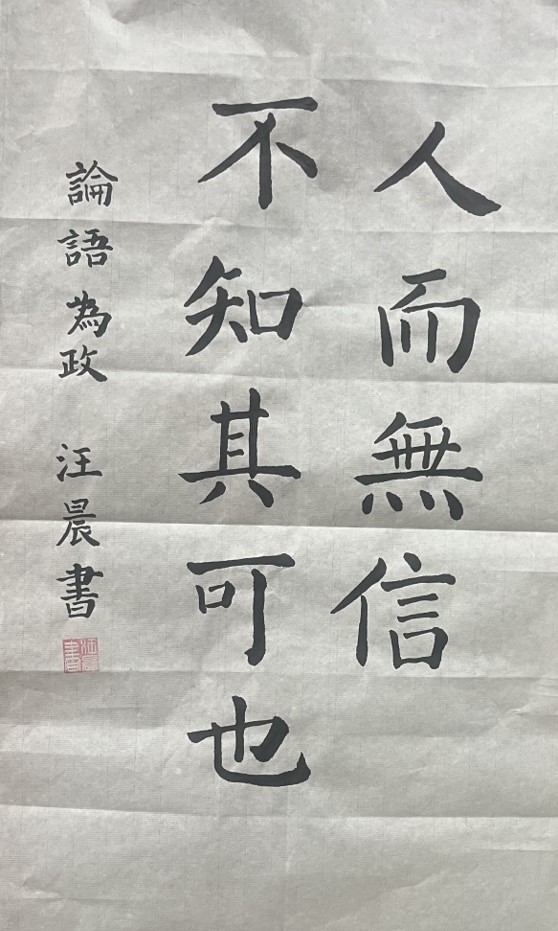 人而無信
不知其可也
論語為政 汪晨書